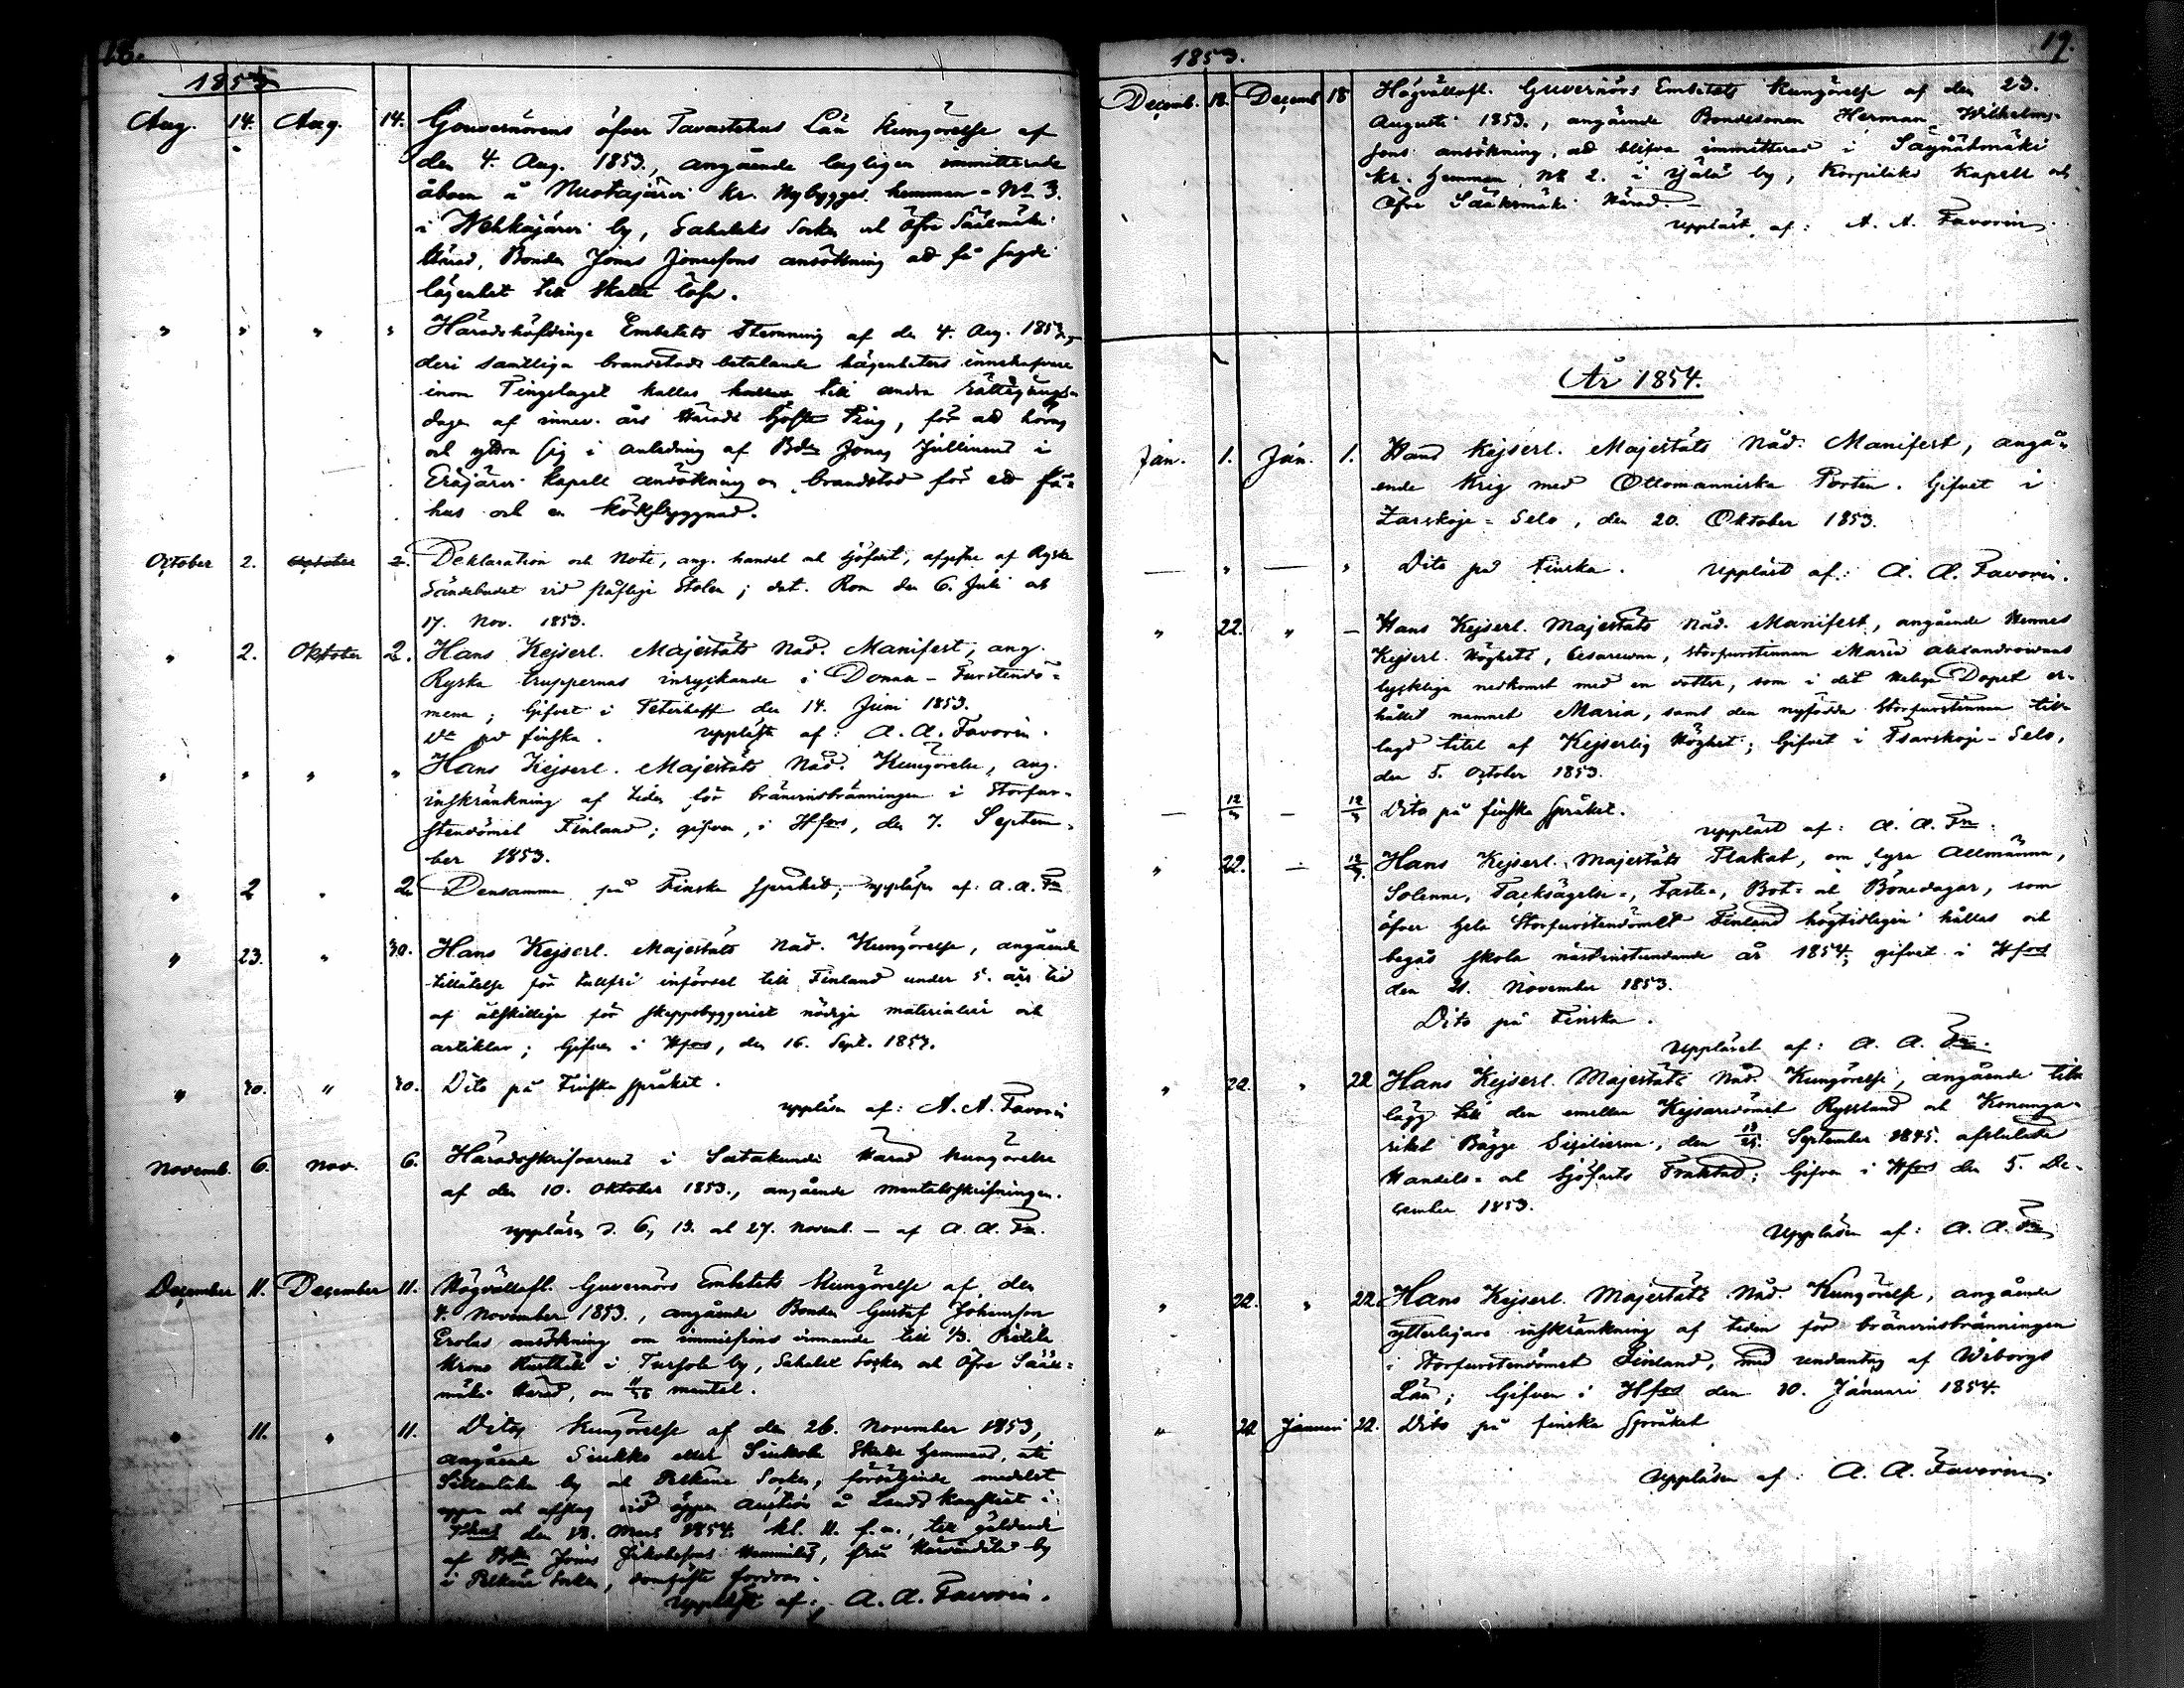 18.
1853
Aug. 14. Aug. 14. Gouvernörens öfver Tavastehus Län Kungörelse af
den 4. Aug. 1853., angående lagligen immitterade
åboen å Nuotajärvi kr. Nybygges hemman - No 3.
i Wehkajärvi by, Sahalaks Socken och Öfre Sääksmäki
Härad, Bonden Jonas Jonassons ansökning att få sagde
lägenhet till Skatte lösa.
" " " " Häradshöfdinge Embetets Stemning af de 4. Aug. 1853.,
deri samtliga brandstods betalande lägenheters innehafvare
inom Tingslaget kallas till andra rättegångs-
dagen af innev. års Härads höste Ting, för att höras
och yttra sig i anledning af Bdn Jonas Jullinens i
Eräjärvi kapell ansökning om brandstod för ett fä-
hus och en kökbyggnad.
October 2. October 2. Deklaration och Note, ang. handel och sjöfart, afgifne af Ryske
Sändebudet vid påflige Stolen; dat. Rom den 6. Juli och
17. Nov. 1853.
" 2. Oktober 2. Hans Kejserl. Majestäts Nåd. Manifest, ang.
Ryska truppernas inryckande i Donau-Furstendö-
mena; Gifvet i Peterhoff den 14. Juni 1853.
Do på finska. Uppläst af: A. A. Favorin.
" " " " Hans Kejserl. Majestäts Nåd. Kungörelse, ang.
inskränkning af tiden för bränvinsbränningen i Storfur-
stendömet Finland; gifven, i Hfors, den 7. Septem-
ber 1853.
" 2 " 2 Densamma på Finska språket; uppläsen af: A. A. Fn
" 23. " 30. Hans Kejserl. Majestäts Nåd. Kungörelse, angående
tillåtelse för tullfri införsel till Finland under 5. års tid
af åtskillige för skeppsbyggeriet nödige materialier och
artiklar; Gifven i Hfors, den 16. Sept. 1853.
" 30. " 30. Dito på Finska språket.
uppläsen af: A. A. Favorin
Novemb. 6. Nov. 6. Häradsskrifvarens i Satakunda Härad Kungörelse
af den 10. Oktober 1853., angående mantalsskrifningen.
uppläsen d. 6, 13. och 27. Novemb. - af A. A. Fn.
December 11. December 11. Högvällofl. Guvernörs Embetets Kungörelse af den
4. November 1853., angående Bonden Gustaf Johansson
Erolas ansökning om immissions vinnande till 1/3. Pietilä
Krono Rusthåll i Tursola by, Sahalax Socken och Öfre Sääks-
mäki Härad, om 11/36 mantal.
" 11. " 11. Ditos Kungörelse af den 26. November 1853,
angående Siukko eller Siukola Skatte Hemmans, uti
by och Pelkäne Socken, försäljande medelst
upprop och afslag vid öppen Auktion å Lands Kansliet i
Thus den 18. Mars 1854. kl. 11. f.m., till gäldande
af Bdn Jonas Jakobsson Hemmilä, från by
i Pelkäne Socken, fordran.
Uppläst af: A. A. Favorin.
19.
1853.
Decemb. 18. Decemb 18 Högvällofl. Guvernörs Embetets Kungörelse af den 23.
Augusti 1853., angående Bondesonen Herman Wilhelms-
sons ansökning, att blifva immitterad i Säynätmäki
kr. Hemman No 2. i by, Korpilaks Kapell och
Öfre Sääksmäki Härad. -
Uppläst af: A. A. Favorin.
År 1854.
Jan. 1. Jan. 1. Hans Kejserl. Majestäts Nåd. Manifest, angå-
ende Krig med Ottomanniska Porten. Gifvet i
Zarskoje-Selo, den 20. Oktober 1853.
— " — " Dito på Finska. Uppläst af: A. A. Favorin.
" 22. " — Hans Kejserl. Majestäts Nåd. Manifest, angående Hennes
Kejserl. Höghets, Cesarewnan, Storfurstinnan Maria Alexandrownas
lyckliga nedkomst med en dotter, som i det Heliga Dopet er-
hållit namnet Maria, samt den nyfödda Storfurstinnan till-
lagd titel af Kejserlig Höghet; Gifvet i Tsarskoje-Selo,
den 5. October 1853.
— — Dito på finska språket.
Uppläst af: A. A. Fn.
" 22. — Hans Kejserl. Majestäts Plakat, om fyra Allmänna,
Solenne, Tacksägelse-, Faste-, Bot- och Bönedagar, som
öfver hela Storfurstendömet Finland högtidligen hållas och
begås skola nästinstundande år 1854; gifvet i Hfors
den 21. November 1853.
Dito på Finska.
Uppläset af: A. A. Fn.
" 22. " 22 Hans Kejserl. Majestäts Nåd. Kungörelse, angående till-
lägg till den emellan Kejsaredömet Ryssland och Konunga-
riket Bägge Sicilierna, den 13/25. September 1845. afslutade
Handels- och Sjöfarts Traktad; Gifven i Hfors den 5. De-
cember 1853.
Uppläsen af: A. A. Fn
" 22. " 22 Hans Kejserl. Majestäts Nåd. Kungörelse, angående
ytterligare inskränkning af tiden för bränvinsbränningen
i Storfurstendömet Finland, med undantag af Wiborgs
Län; Gifven i Hfors den 10. Januari 1854.
" 22 Januari 22. Dito på finska Språket
Uppläsen af: A. A. Favorin.